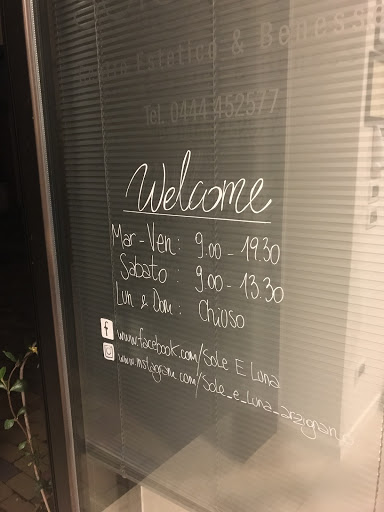 Estetico & Benesse
Tel. 0444 452577
Welcome
Mar - Ven : 9.00 - 19.30
Sabato : 9.00 - 13.30
Lun & Dom : Chiuso
f www.facebook.com/Sole E Luna
www.instagram.com/Sole_e_luna_arzignano